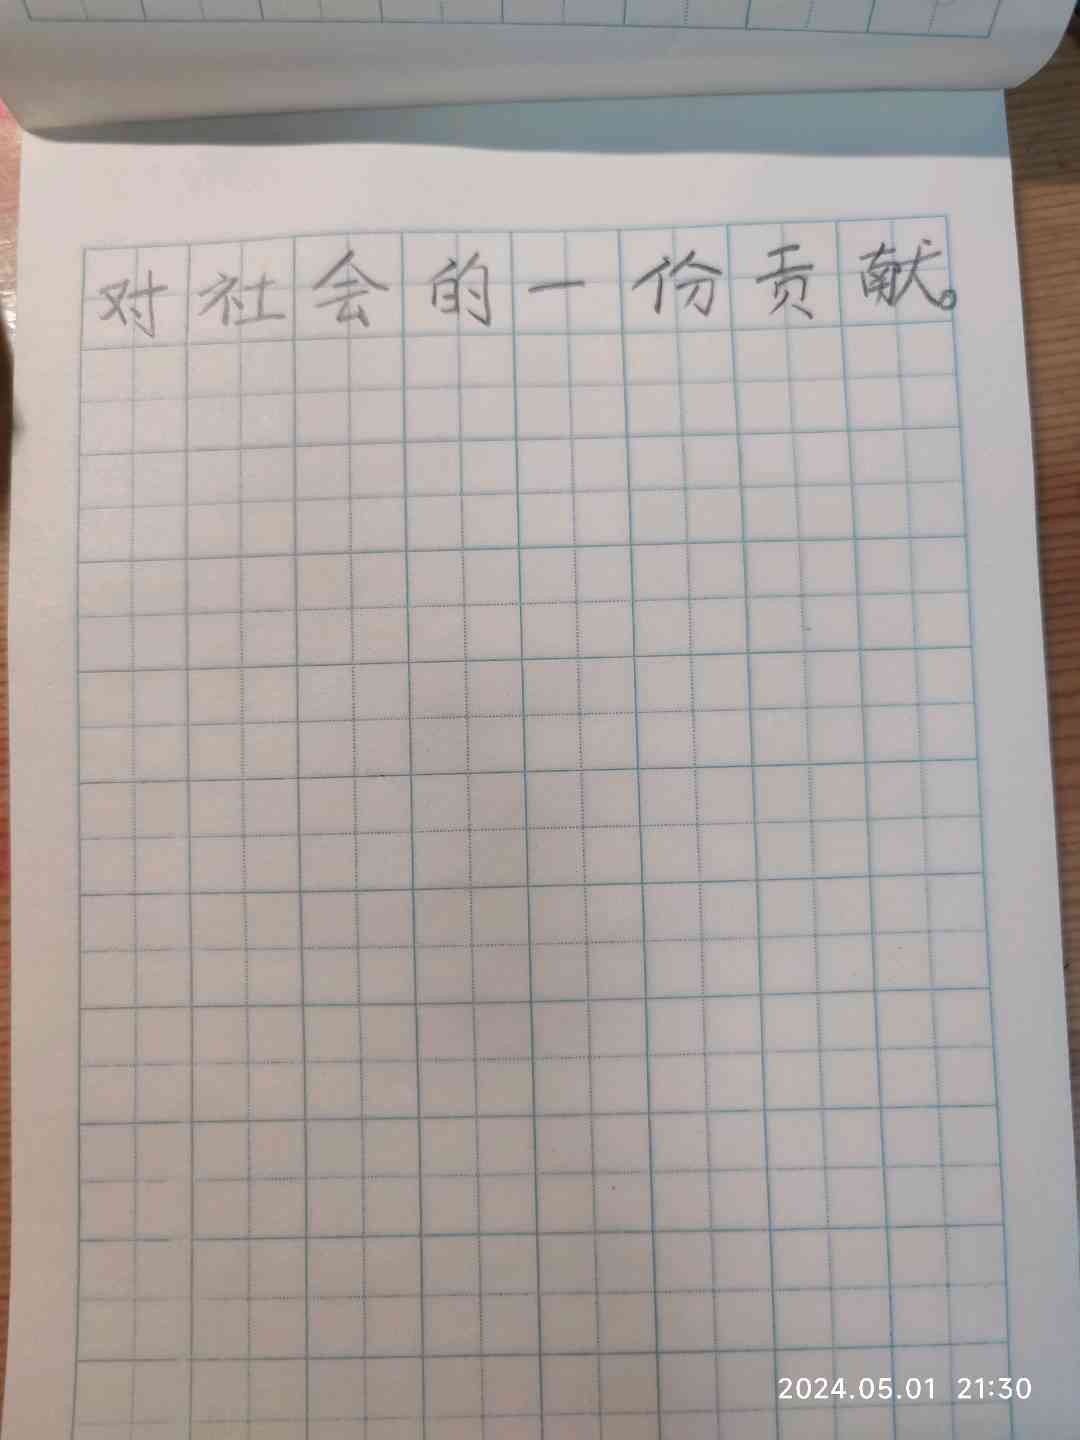 对社会的一份贡献。
2024.05.01 21:30